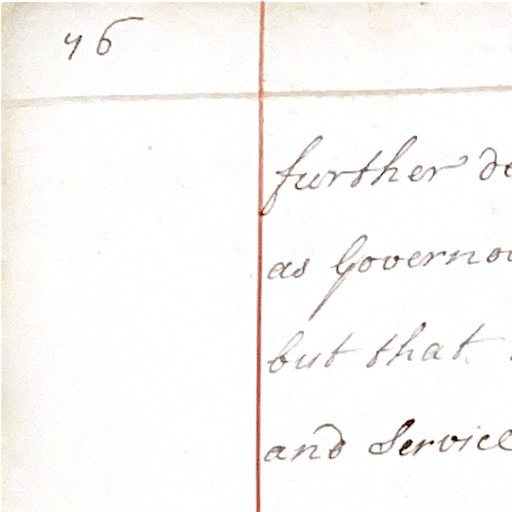 76
further de
as Governou
but that
and Service